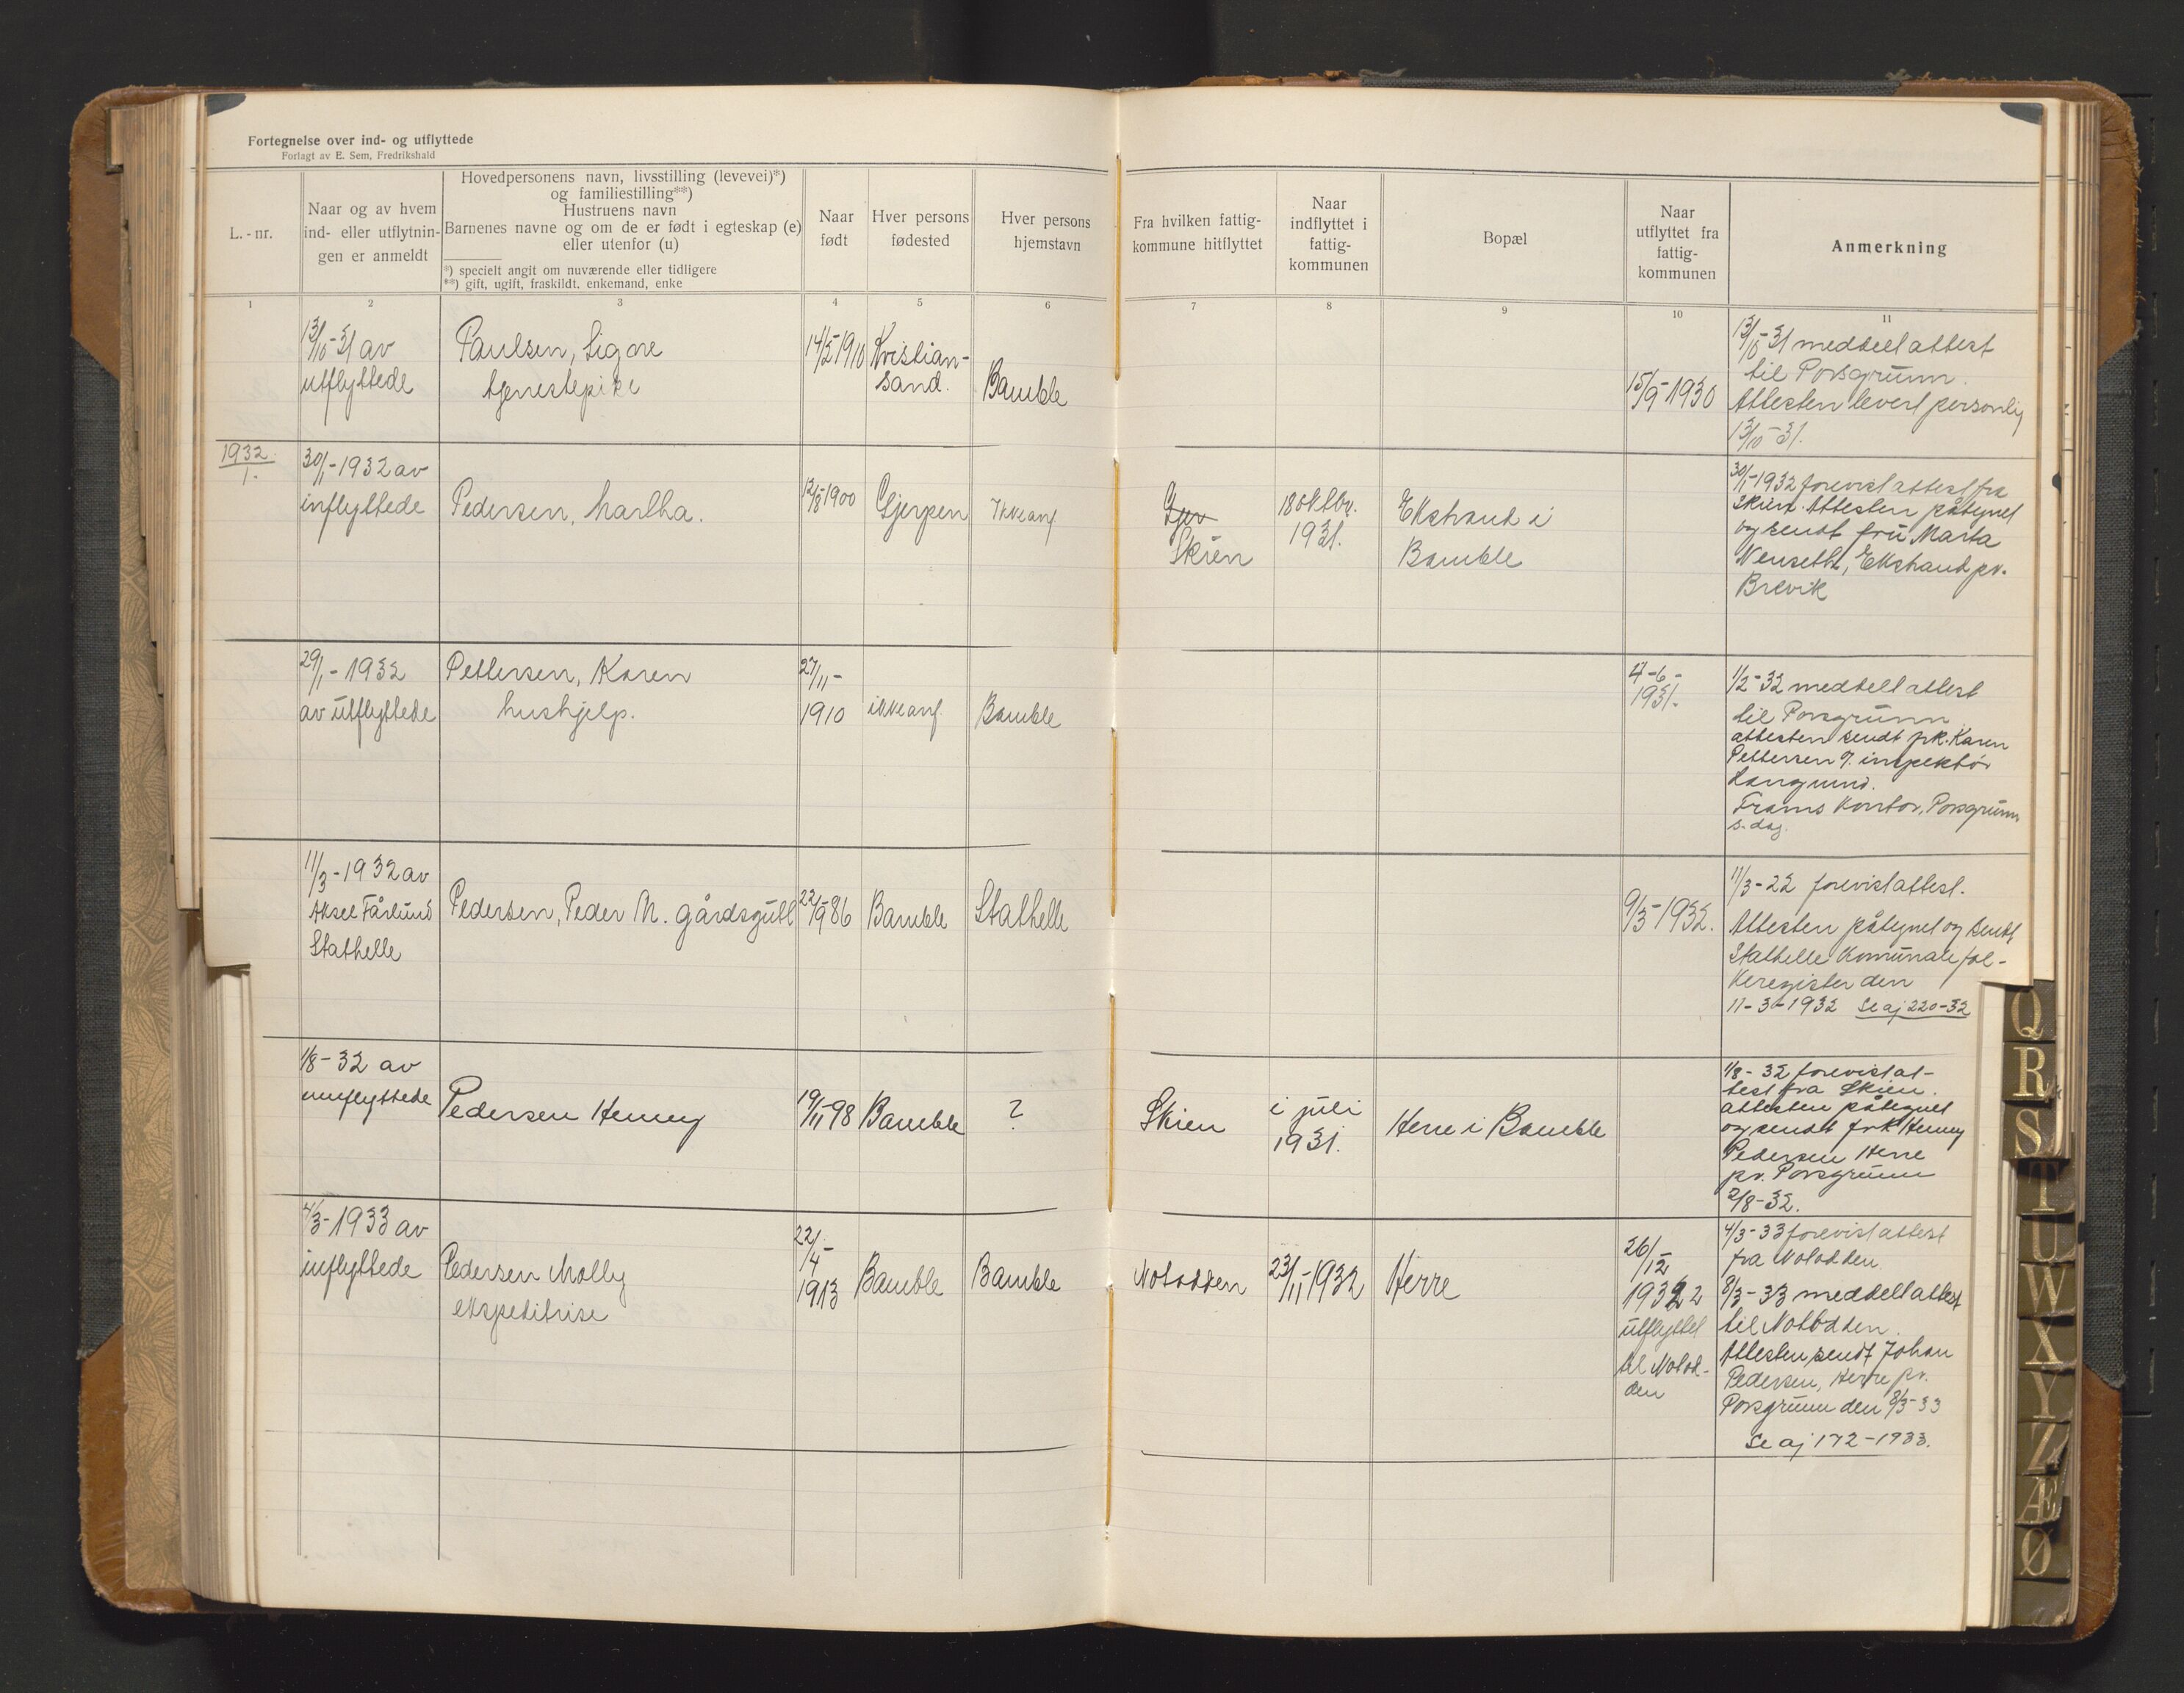 Fortegnelse over ind- og utflyttede
Forlagt av E. Sem, Fredrikshald
L.-nr.
Naar og av hvem
ind- eller utflytnin-
gen er anmeldt
Hovedpersonens navn, livsstilling (levevei)*)
og familiestilling**)
Hustruens navn
Barnenes navne og om de er født i egteskap (e)
eller utenfor (u)
*) specielt angit om nuværende eller tidligere
**) gift, ugift, fraskildt, enkemand, enke
Naar
født
Hver persons
fødested
Hver persons
hjemstavn
Fra hvilken fattig-
kommune hitflyttet
Naar
indflyttet i
fattig-
kommunen
Bopæl
Naar
utflyttet fra
fattig-
kommunen
Anmerkning
1 2 3 4 5 6 7 8 9 10 11
13/10-31 av
utflyttede
Paulsen, Signe
tjenestepike
14/5-1910
Kristian-
sand.
Bamble
15/9-1930
13/10-31 meddelt attest
til Porsgrunn.
Attesten levert personlig
13/10-31.
1932
1.
30/1-1932 av
inflyttede
Pedersen, Martha.
12/8-1900
Gjerpen
Ikke anf
Gjer
Skien
18 oktbr.
1931.
Ekstrand i
Bamble
30/1-1932 forevist attest fra
Skien. Attesten påtegnet
og sendt fru Marta
Wenseth, Ekstrand pr.
Brevik
29/1-1932
av utflyttede
Pettersen, Karen
hushjelp.
27/11-
1910
ikke anf
Bamble
4-6-
1931.
1/2-32 meddelt attest
til Porsgrunn
attesten sendt frk. Karen
Pettersen
inspektør
Langsund.
Frams Kontor, Porsgrunn
s. dag.
11/3-1932 av
Aksel Fårlund
Stathelle
Pedersen, Peder M. gårdsgutt
22/9-86
Bamble
Stathelle
9/3-1932.
11/3-22 forevist attest.
Attesten påtegnet og sendt
Stathelle Komunale fol-
keregister den
11-3-1932 Se aj 220-32
1/8-32 av
innflyttede
Pedersen Henny
19/11-98
Bamble
?
Skien
i juli
1931.
Herre i Bamble
1/8-32 forevist at-
test fra Skien.
attesten påtegnet
og sendt frk Henny
Pedersen Herre
pr. Porsgrunn
2/8-32.
4/3-1933 av
inflyttede
Pedersen Molly
ekspeditrise
22/4-
1913
Bamble
Bamble
Notodden
23/11-1932
Herre
26/12-
1932 2
utflyttet
til Notod-
den
4/3-33 forevist attest
fra Notodden
8/3-33 meddelt attest
til Notodden.
Attesten sendt Johan
Pedersen, Herre pr.
Porsgrunn den 8/3-33
Se aj 172-1933.
Q
R
S
T
U
W
X
Y
Z
Æ
Ø